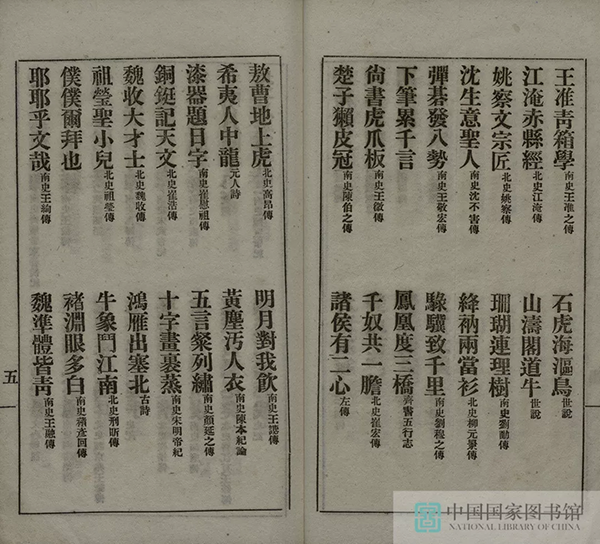 王准青箱學南史王准之傳 石虎海漚鳥世說
江淹赤縣經北史江淹傳 山濤閣道牛世說
姚察文宗匠北史姚察傳 珊瑚連理樹南史劉勔傳
沈生意聖人南史沈不害傳 絳衲兩當衫北史柳元景傳
彈碁發八勢南史王敬宏傳 騄驥致千里南史劉穆之傳
下筆累千言 鳳凰度三橋齊書五行志
尙書虎爪板南史王微傳 千奴共一膽北史崔宏傳
楚子獺皮冠南史陳伯之傳 諸侯有二心左傳
敖曹地上虎北史高昂傳 明月對我飲南史王諶傳
希夷人中龍元人詩 黃塵汚人衣南史陳本紀論
漆器題日字南史崔慰祖傳 五言粲列繡南史顏延之傳
銅鋌記天文北史崔浩傳 十字畫裹蒸南史宋明帝紀
魏收大才士北史魏收傳 鴻雁出塞北古詩
祖瑩聖小兒北史祖瑩傳 牛象鬥江南北史刑昕傳
僕僕爾拜也 褚淵眼多白南史褚彥回傳
耶耶乎文哉南史王絢傳 魏準體皆靑南史王融傳
五
中国国家图书馆
NATIONAL LIBRARY OF CHINA